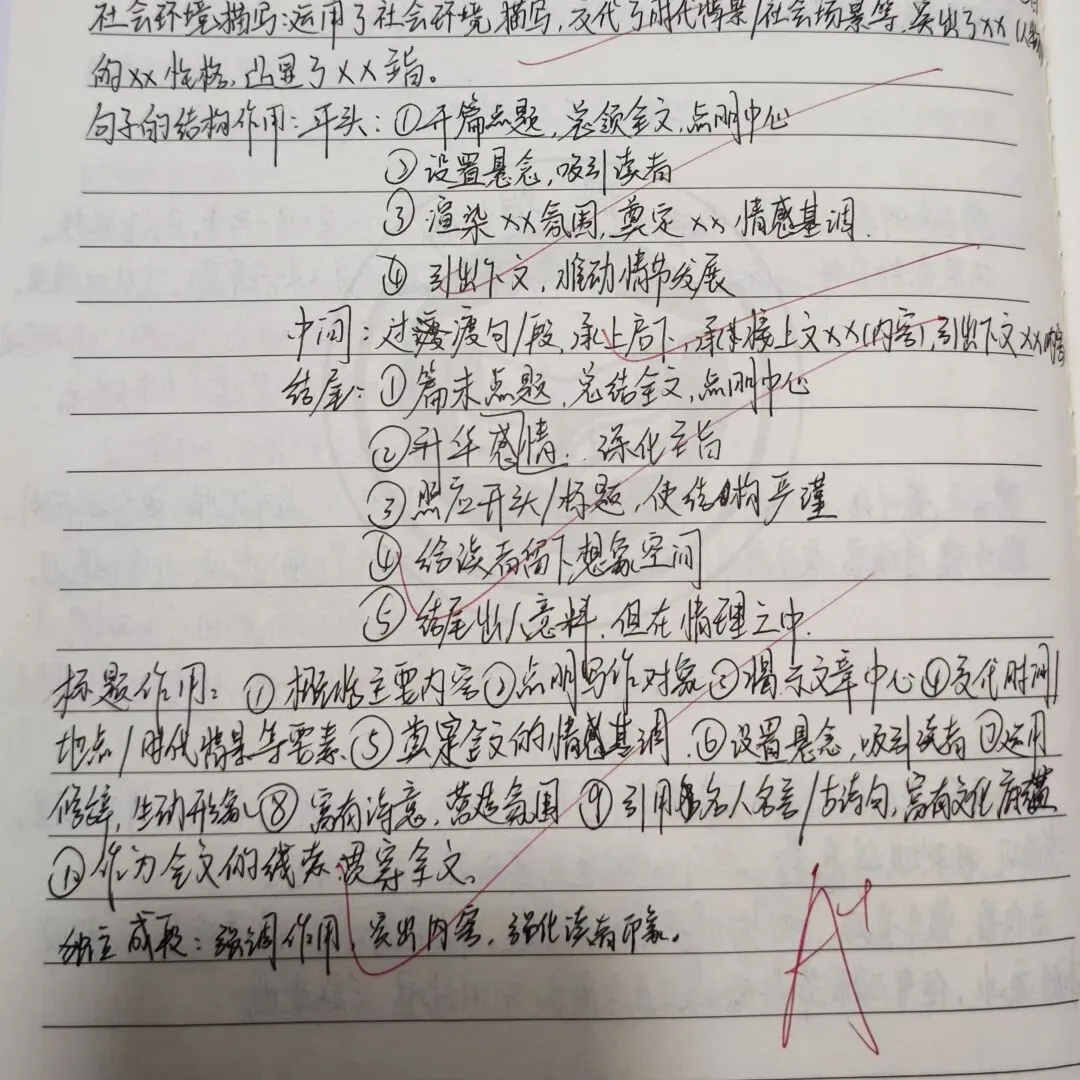 社会环境描写:运用了社会环境描写,交代了时代背景/社会场景等,突出了xx(人物)
的xx性格,凸显了xx主旨。
句子的结构作用:开头:①开篇点题,总领全文,点明中心
②设置悬念,吸引读者
③渲染xx氛围,奠定xx情感基调.
④引出下文,推动情节发展
中间:过渡句/段,承上启下,承接上文xx(内容),引出下文xx内容
结尾:①篇末点题,总结全文,点明中心
②升华感情.深化主旨
③照应开头/标题,使结构严谨
④给读者留下想象空间
⑤结尾出人意料.但在情理之中.
标题作用:①概括主要内容②点明写作对象③揭示文章中心④交代时间/
地点/时代背景等要素⑤奠定全文的情感基调.⑥设置悬念,吸引读者⑦运用
修辞,生动形象⑧富有诗意,营造氛围⑨引用名人名言/古诗句,富有文化底蕴
⑩作为全文的线索贯穿全文。
独立成段:强调作用,突出内容,强化读者印象。
A+